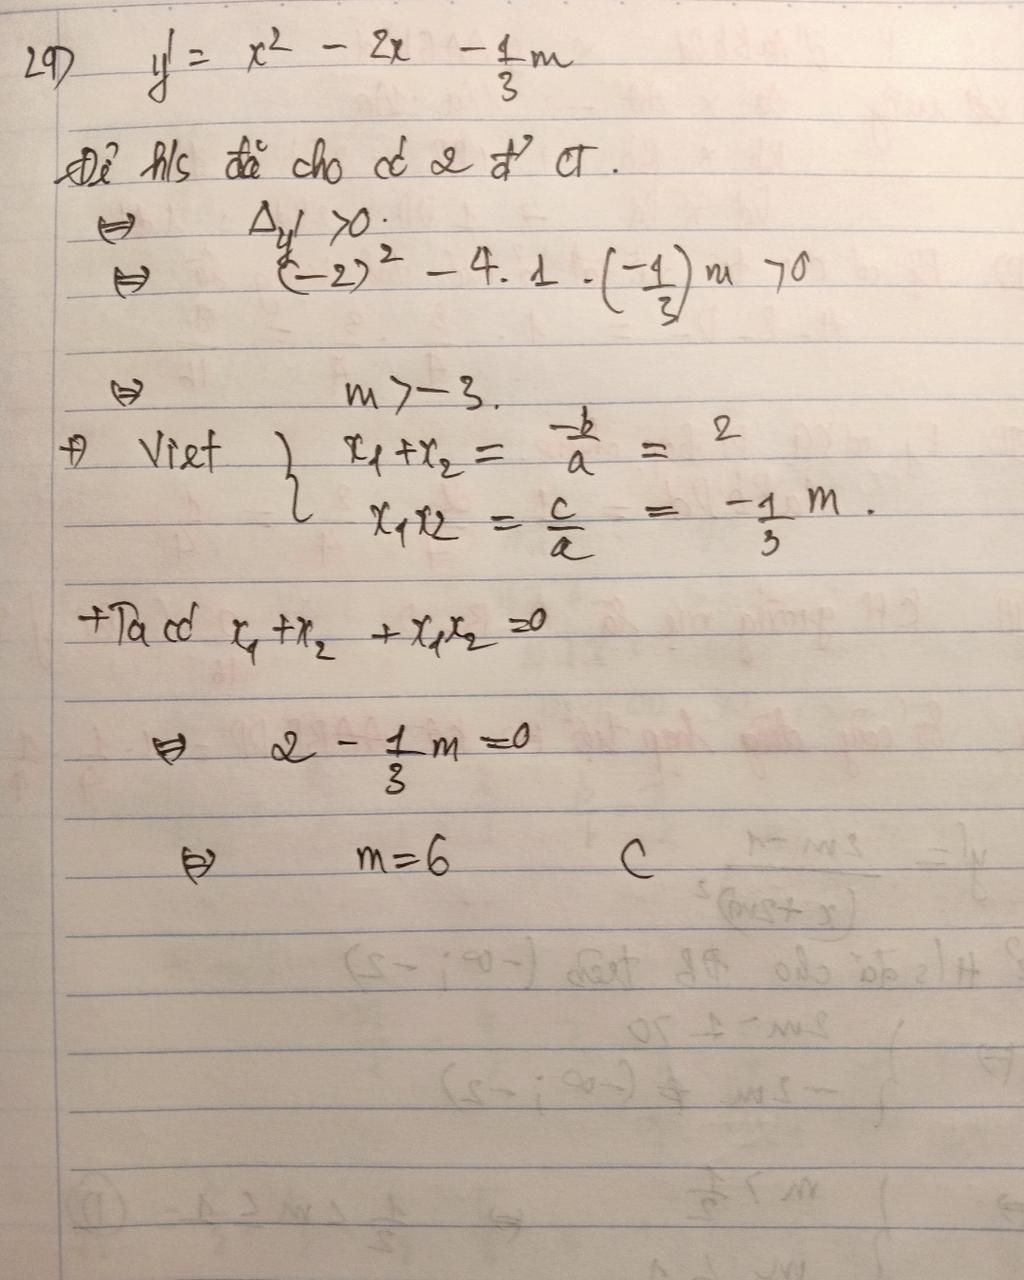 29) y' = x² - 2x - 1/3 m
Để h/s đã cho có 2 đ' CT.
⇔ Δy' >0.
⇔ (-2)² - 4. 1 . (-1/3) m >0
⇔ m > -3.
+) Viet { x₁ + x₂ = -b/a = 2
x₁x₂ = c/a = -1/3 m .
+ Ta có x₁ + x₂ + x₁x₂ = 0
⇔ 2 - 1/3 m = 0
⇔ m = 6 C